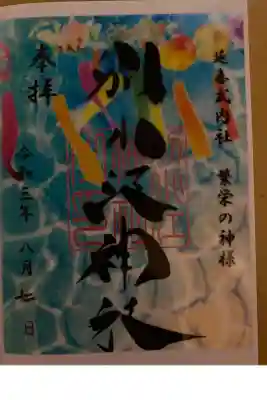 延喜式内社 繁栄の神様
別小江神社
奉拝
令和三年 八月七日